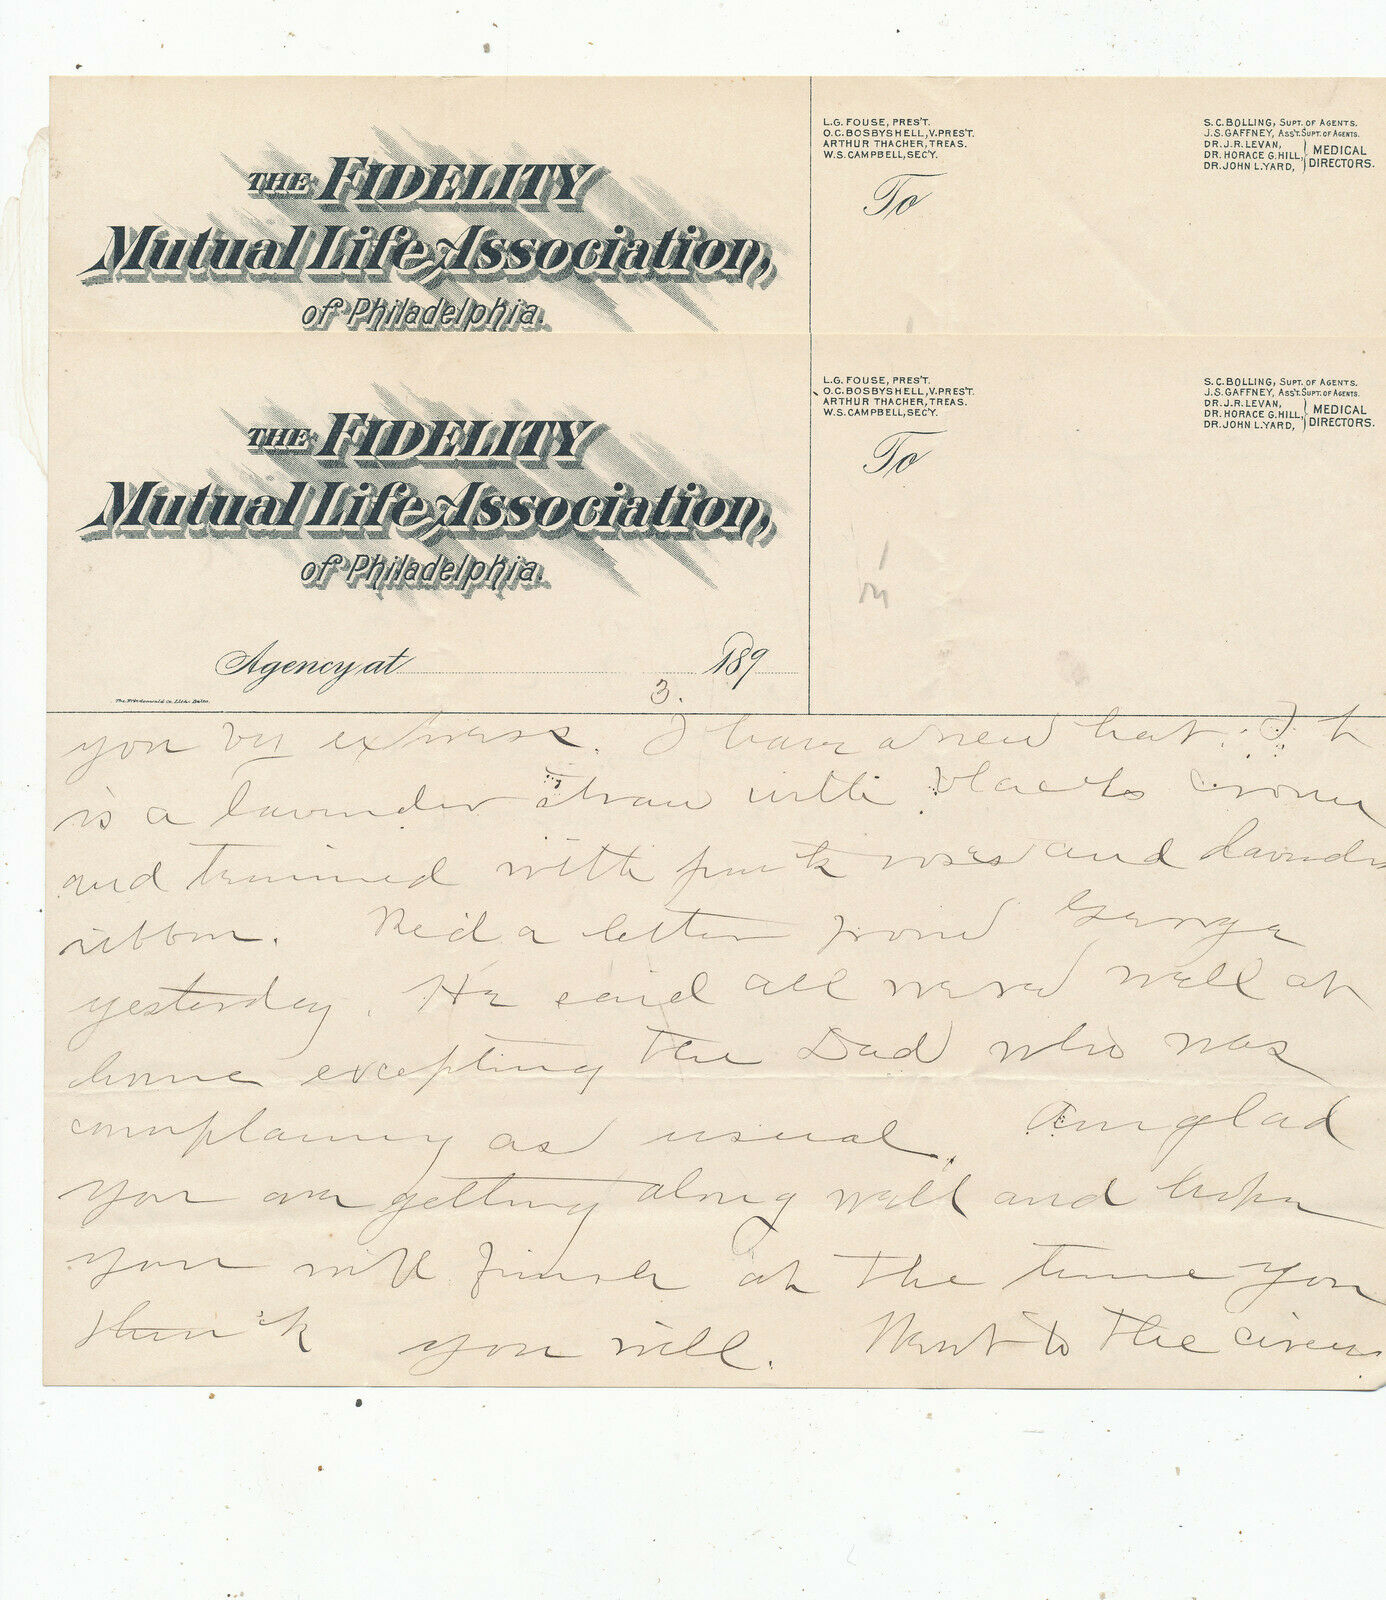 THE FIDELITY
Mutual Life Association,
of Philadelphia.
L.G. FOUSE, PRES'T.
O.C. BOSBYSHELL, V. PRES'T.
ARTHUR THACHER, TREAS.
W.S. CAMPBELL, SEC'Y.
To
S.C. BOLLING, SUPT. OF AGENTS.
J.S. GAFFNEY, ASS'T. SUPT. OF AGENTS.
DR. J.R. LEVAN,
DR. HORACE G. HILL,
DR. JOHN L. YARD,
MEDICAL
DIRECTORS.
THE FIDELITY
Mutual Life Association,
of Philadelphia.
L.G. FOUSE, PRES'T.
O.C. BOSBYSHELL, V. PRES'T.
ARTHUR THACHER, TREAS.
W.S. CAMPBELL, SEC'Y.
To
S.C. BOLLING, SUPT. OF AGENTS.
J.S. GAFFNEY, ASS'T. SUPT. OF AGENTS.
DR. J.R. LEVAN,
DR. HORACE G. HILL,
DR. JOHN L. YARD,
MEDICAL
DIRECTORS.
Agency at 189
The Friedenwald Co. Lith. Balto.
3.
you by express. I have a new hat. It
is a lavender straw with black crown
and trimmed with pink roses and lavender
ribbon. Rec'd a letter from George
yesterday. He said all were well at
home excepting the Dad who was
complaining as usual. Am glad
you are getting along well and hope
you will finish at the time you
think you will. Went to the circus